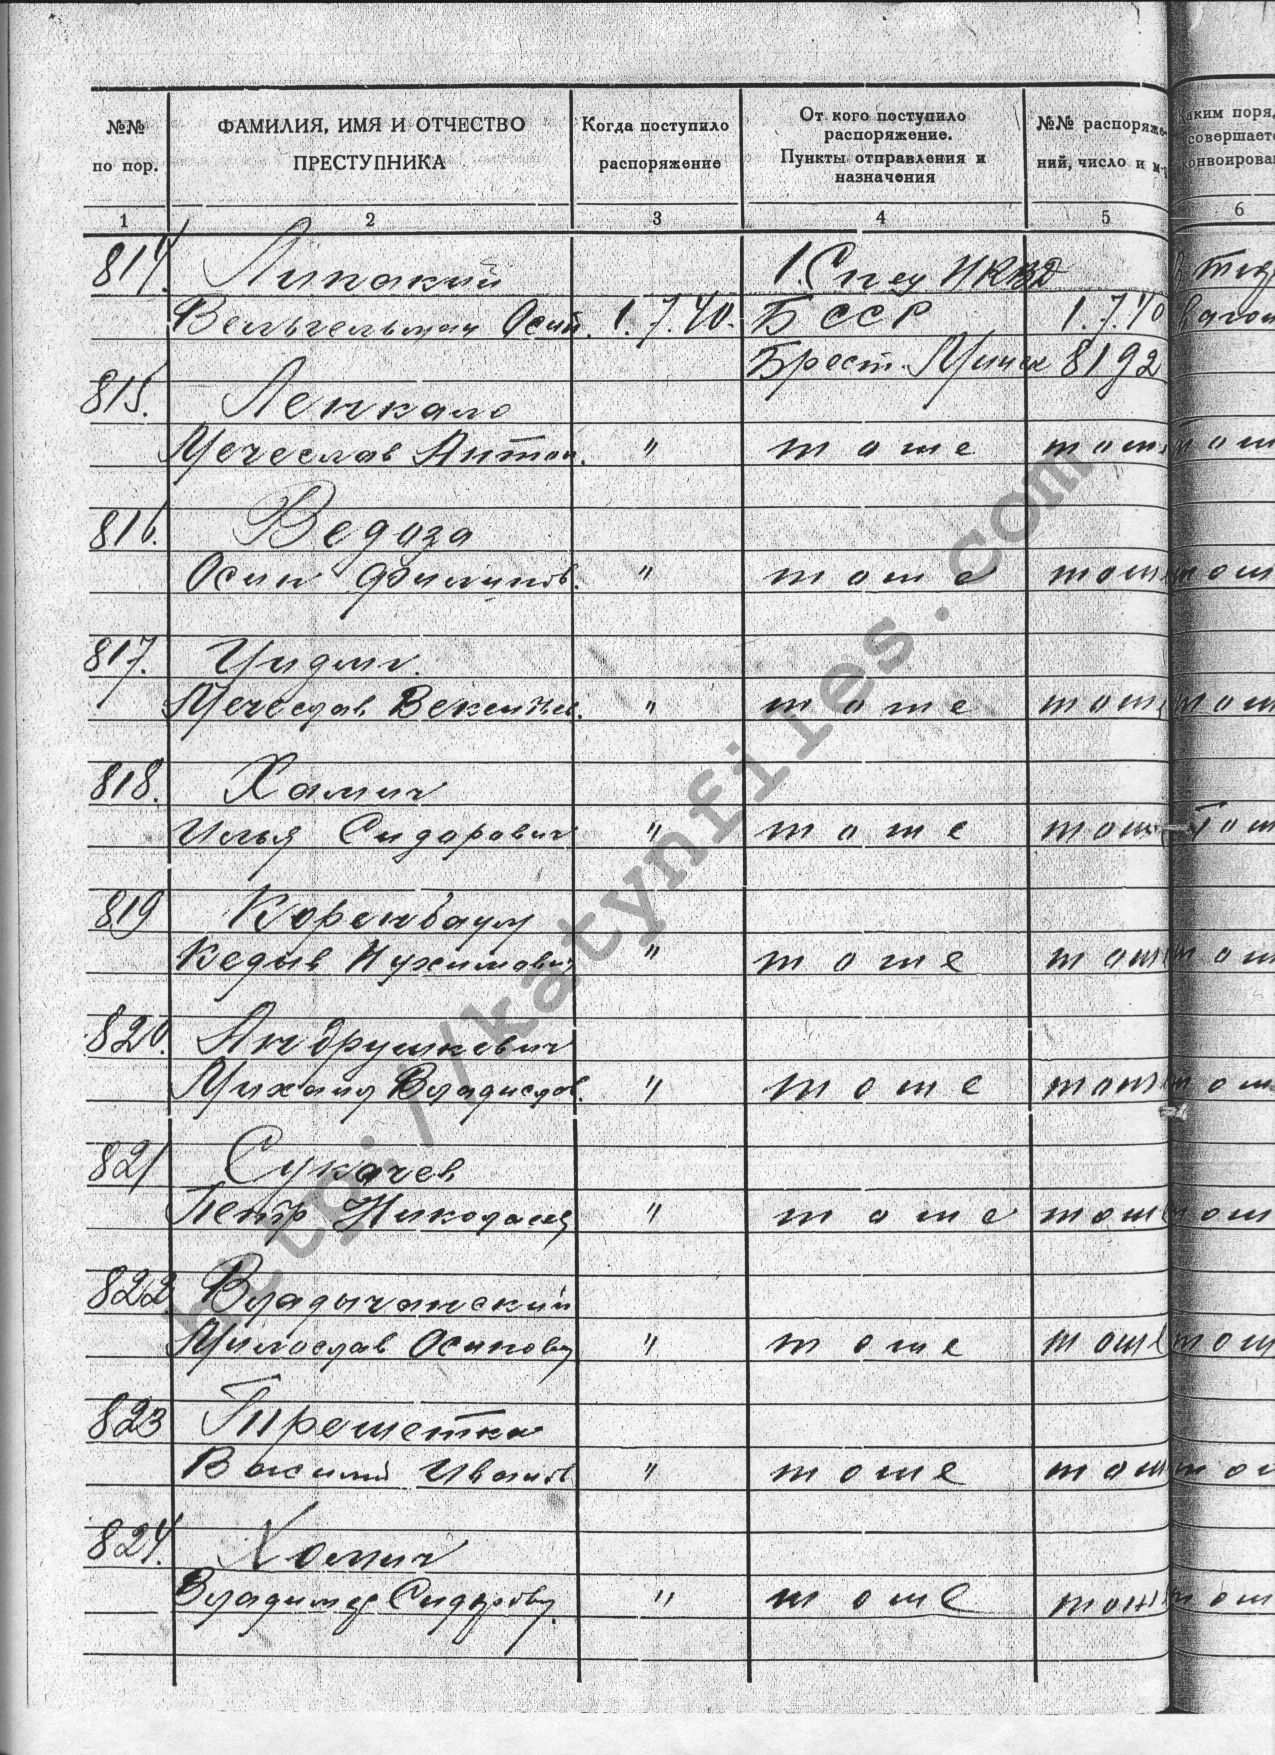 №№ по пор.
ФАМИЛИЯ, ИМЯ И ОТЧЕСТВО ПРЕСТУПНИКА
Когда поступило распоряжение
От кого поступило распоряжение. Пункты отправления и назначения
№№ распоряже-
ний, число и м-ц
Каким поря,
совершаетс
конвоирован
1 2 3 4 5 6
814. Липский 1. Спец НКВД
Вельгельман Осип. 1.7.40. БССР 1.7.40 Вагон
Брест. Минск 8192
815. Ленкало
Мечеслав Антон. " тоже тоже
816. Ведоза
Осип Филипов. " тоже тоже
817.
Мечеслав " тоже тоже
818. Хамич
Илья Сидорович " тоже тоже
819 Коренбаум
Нухимович " тоже тоже
820. Андрушкевич
Михаил Владислав. " тоже тоже
821 Сукачев
Петр Николаев " тоже тоже
822 Владычанский
Милослав Осипович " тоже тоже
823
Василий Иванов " тоже тоже
824. Хомич
Владимир Сидорович. " тоже тоже
http://katynfiles.com